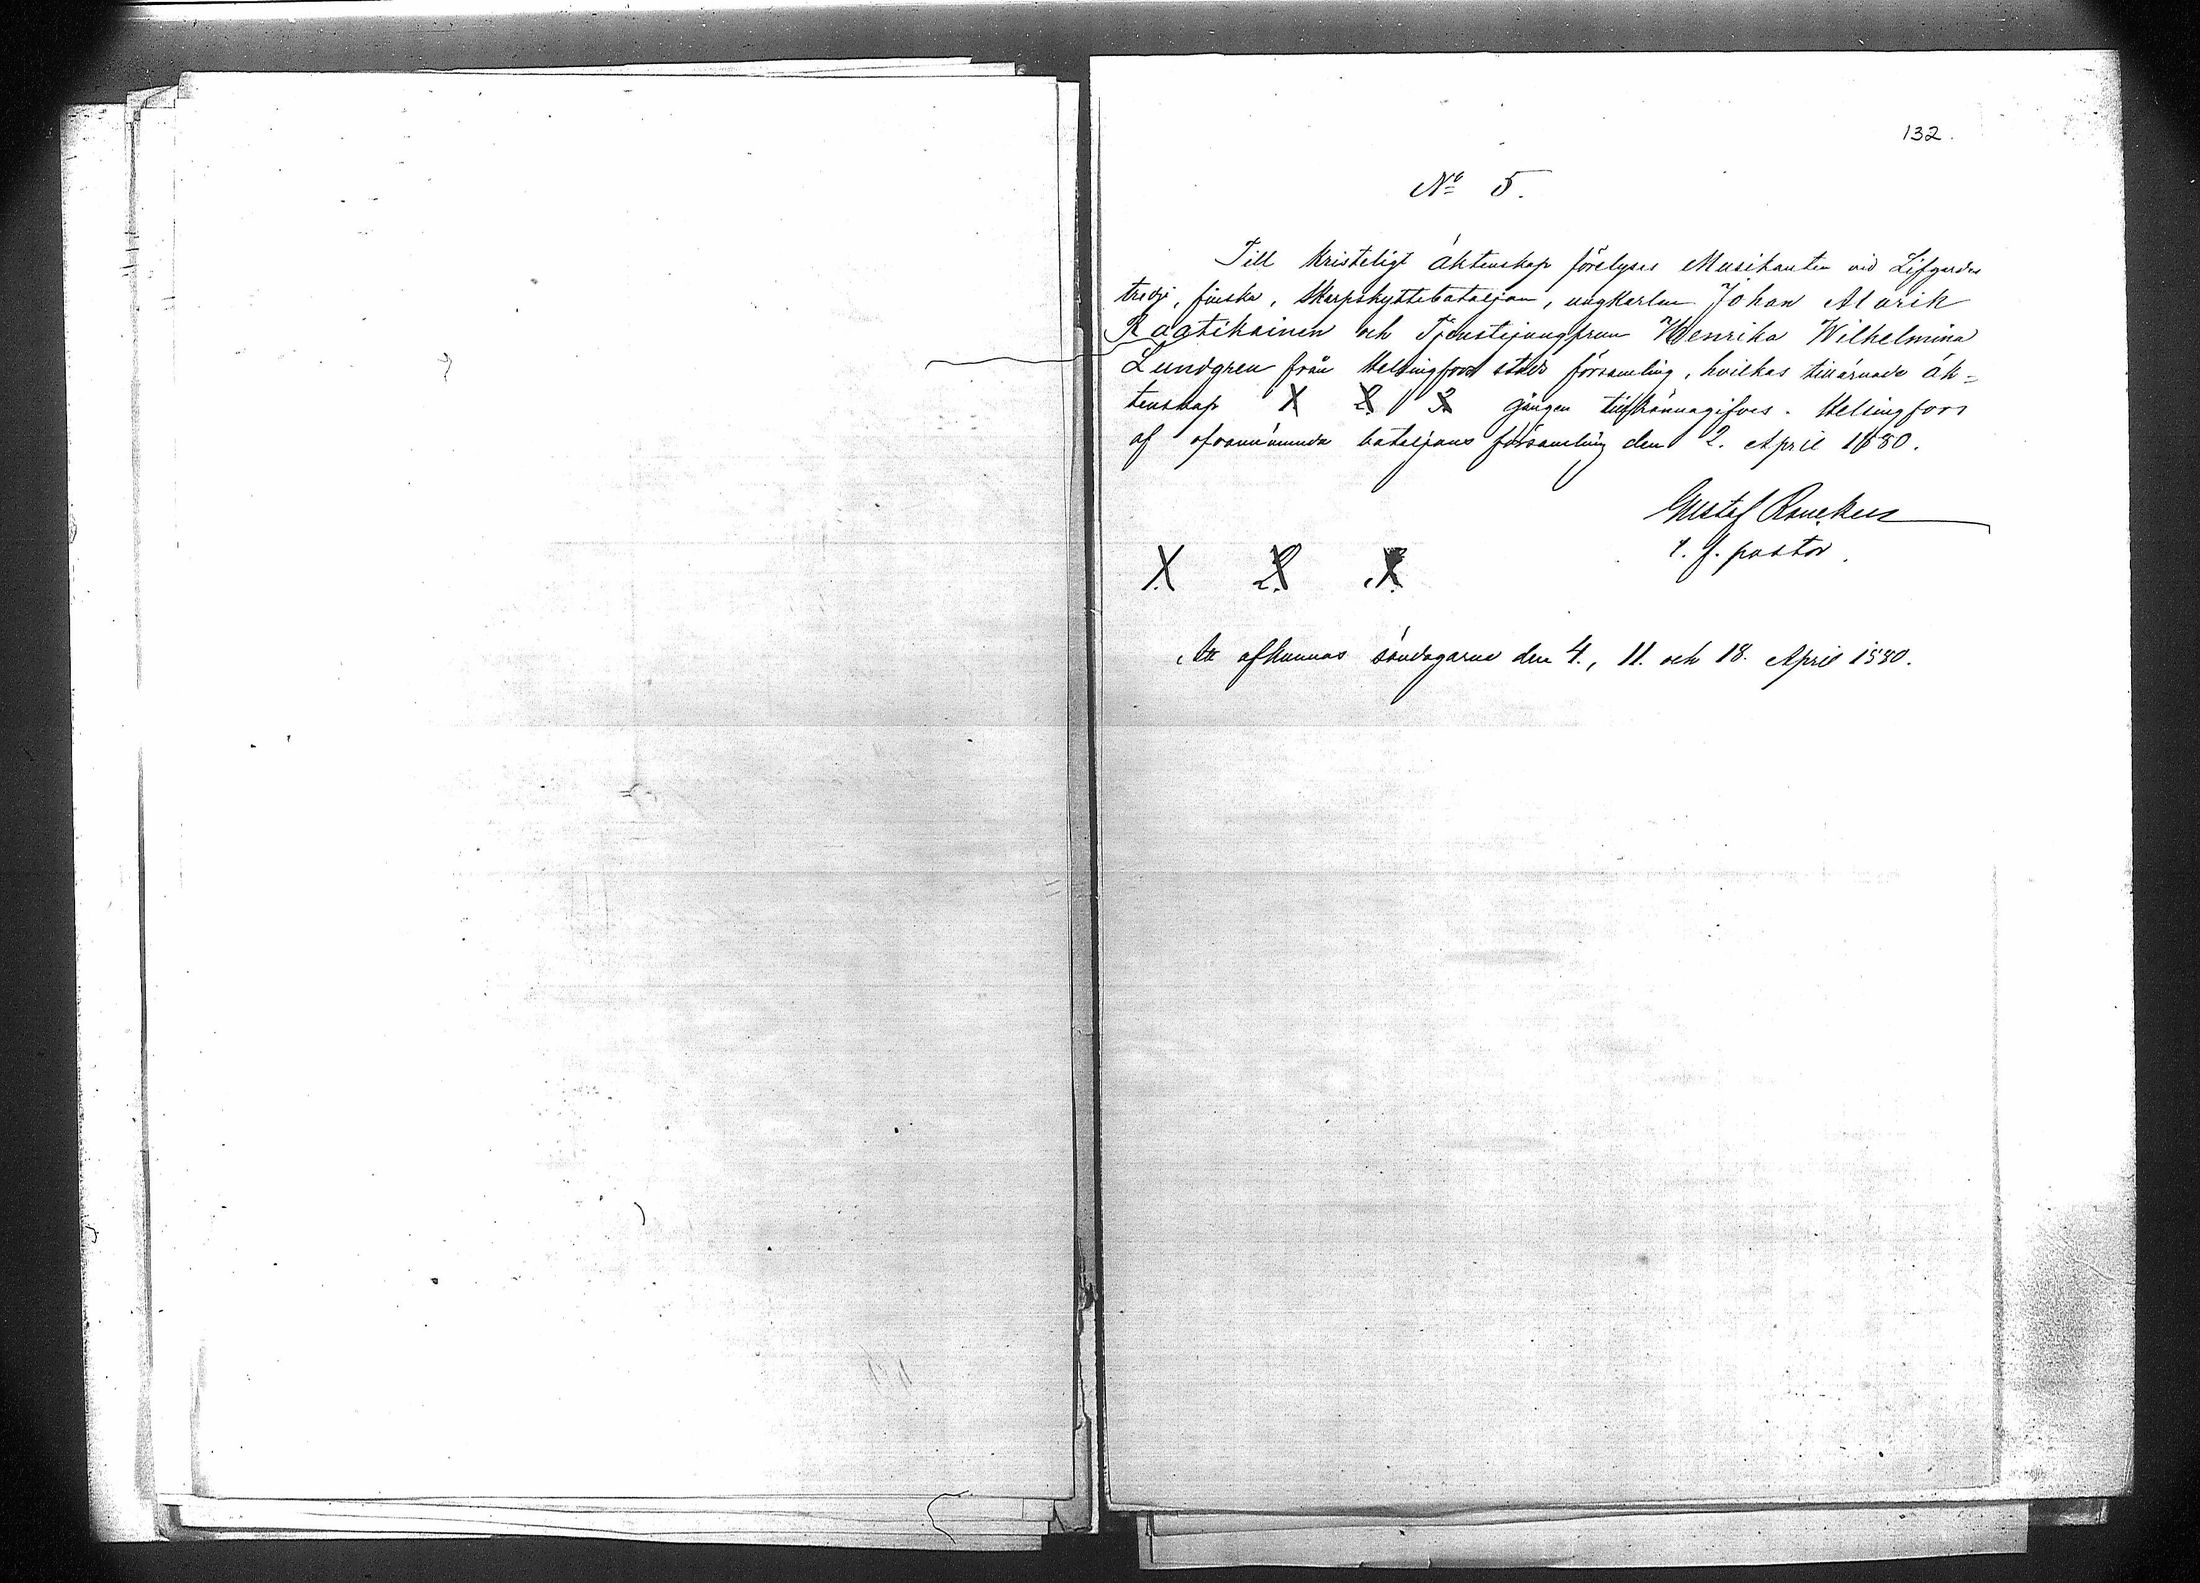 132.
No 5.
Till kristeligt äktenskap förelyses Musikanten vid Lifgardes
tredje, finska, Skarpskyttebataljon, ungkarlen Johan Alarik
Raatikainen och Tjenstejungfrun Henrika Wilhelmina
Lundgren från Helsingfors stads församling, hvilkas tillärnade äk=
tenskap 1 2 3 gången tillkännagifves. Helsingfors
af ofvannämnda bataljons församling den 2. April 1880.
Gustaf Rancken
t. f. pastor.
1. 2. 3.
Att afkunnas söndagarne den 4., 11. och 18. April 1880.